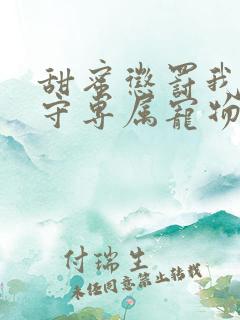 甜蜜惩罚我
守专属宠物
付瑞生
未经同意禁止转载